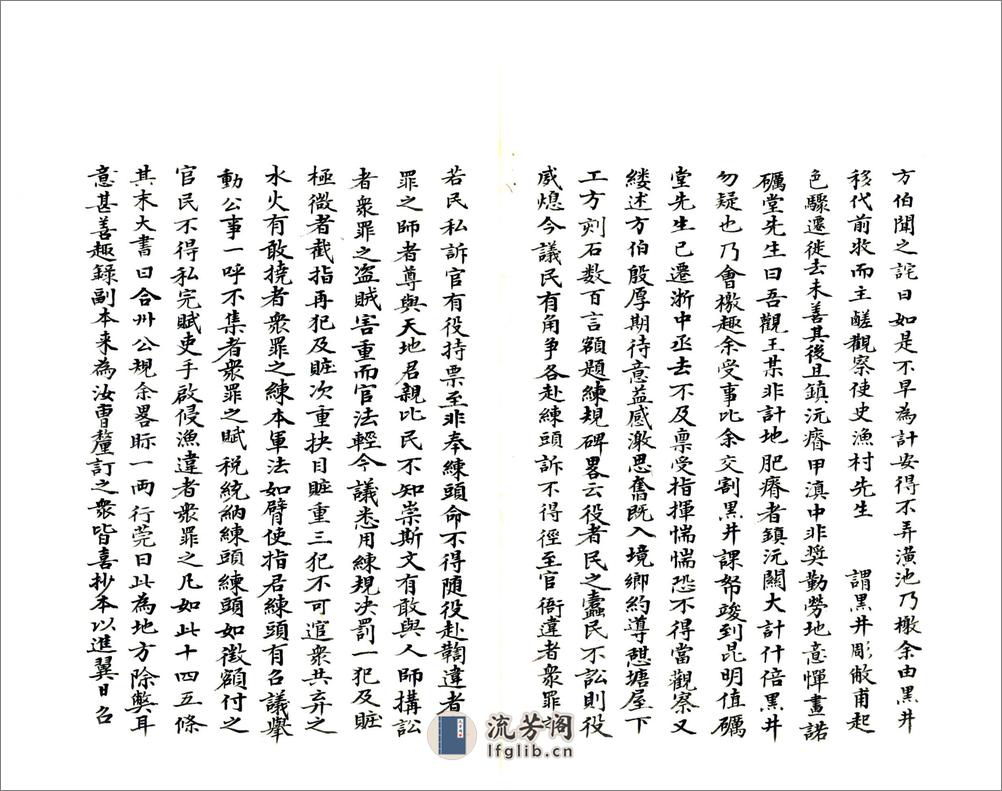 方伯聞之詫曰如是不早為計安得不弄潢池乃檄余由黑井
移代前牧而主鹺觀察使史漁村先生 謂黑井彫敝甫起
色驟遷徙去未善其後且鎮沅瘠甲滇中非獎勤勞地意憚畫諾
礪堂先生曰吾觀王某非計地肥瘠者鎮沅關大計什倍黑井
勿疑也乃會檄趣余受事比余交割黑井課帑竣到昆明值礪
堂先生已遷浙中丞去不及稟受指揮惴惴恐不得當觀察又
縷述方伯殷厚期待意益感激思奮既入境鄉約導憩塘屋下
工方刻石數百言額題練規碑畧云役者民之蠹民不訟則役
威熄今議民有角爭各赴練頭訴不得徑至官衙違者衆罪
若民私訴官有役持票至非奉練頭命不得隨役赴鞫違者
罪之師者尊與天地君親比民不知崇斯文有敢與人師搆訟
者衆罪之盗賊害重而官法輕今議悉用練規决罰一犯及賍
極微者截指再犯及賍次重抉目賍重三犯不可逭衆共弃之
水火有敢撓者衆罪之練本軍法如臂使指君練頭有召議舉
動公事一呼不集者衆罪之賦稅統納練頭練頭如徵額付之
官民不得私完賦吏手啟侵漁違者衆罪之凡如此十四五條
其末大書曰合州公規余畧眎一兩行莞曰此為地方除獘耳
意甚善趣録副本来為汝曹釐訂之衆皆喜抄本以進翼日召
流芳阁
lfglib.cn